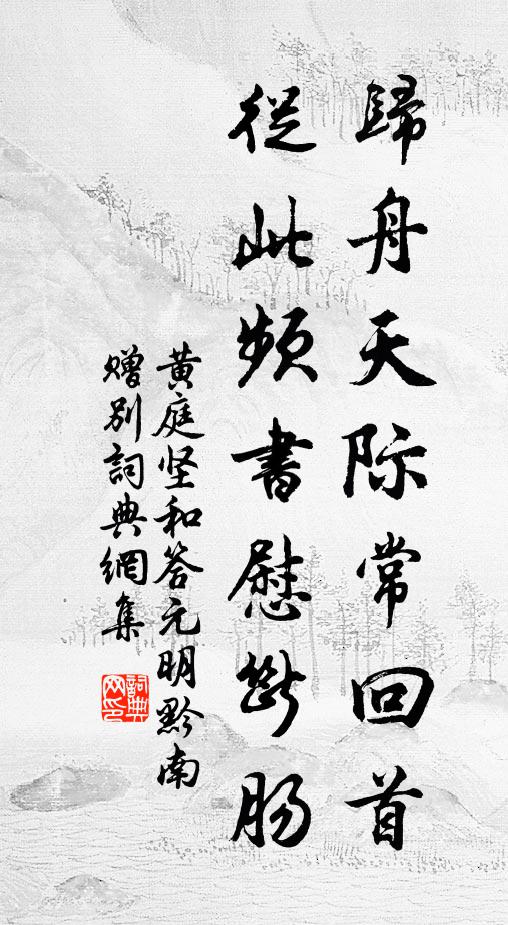 歸舟天际常回首
從此頻書慰斷腸
黄庭坚和答元明黔南
赠别詞典網集
詞典网印